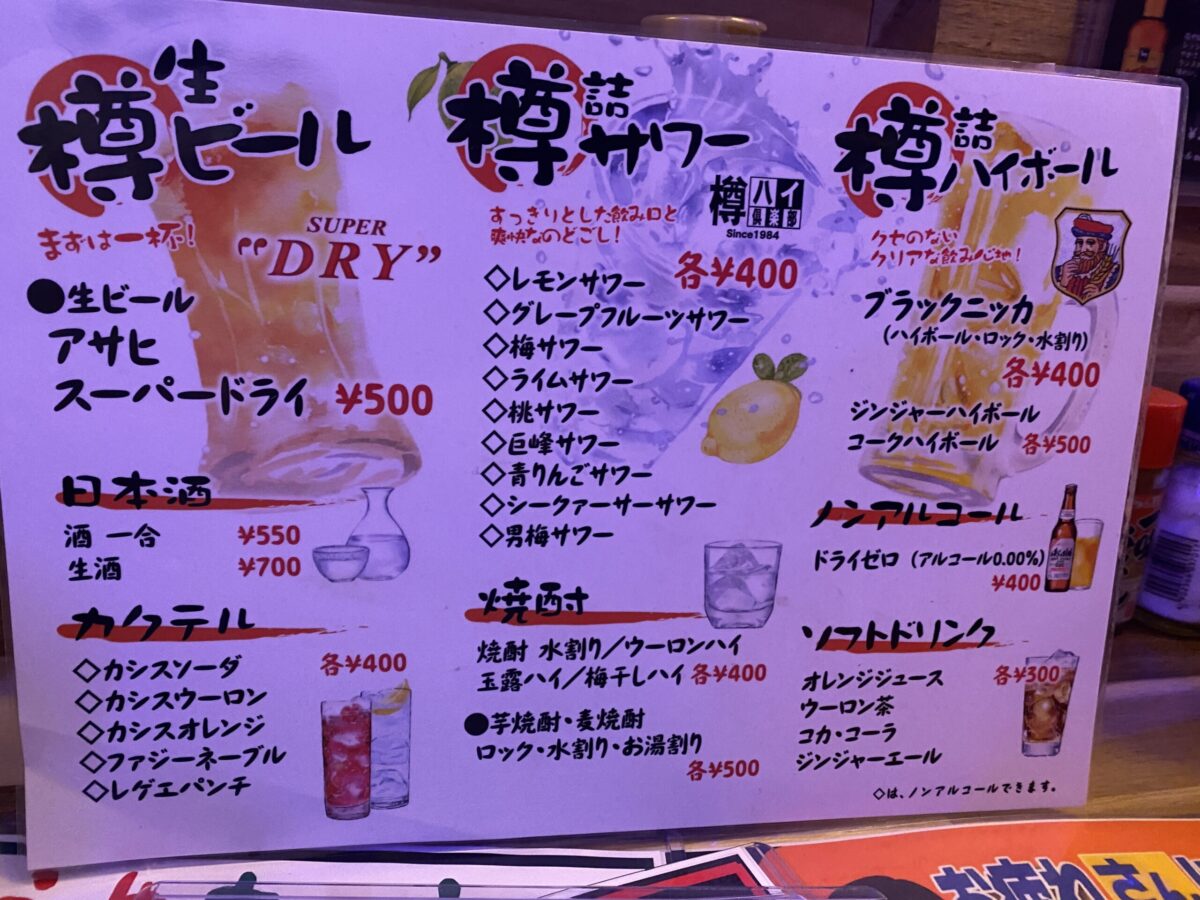 樽生ビール
まずは一杯!
SUPER
"DRY"
●生ビール
アサヒ
スーパードライ ¥500
日本酒
酒 一合 ¥550
生酒 ¥700
カクテル
◇カシスソーダ 各¥400
◇カシスウーロン
◇カシスオレンジ
◇ファジーネーブル
◇レゲエパンチ
樽詰サワー
すっきりとした飲み口と
爽快なのどごし!
樽ハイ倶楽部
Since1984
各¥400
◇レモンサワー
◇グレープフルーツサワー
◇梅サワー
◇ライムサワー
◇桃サワー
◇巨峰サワー
◇青りんごサワー
◇シークァーサーサワー
◇男梅サワー
焼酎
焼酎 水割り/ウーロンハイ
玉露ハイ/梅干しハイ 各¥400
●芋焼酎・麦焼酎
ロック・水割り・お湯割り
各¥500
樽詰ハイボール
クセのない
クリアな飲み心地!
ブラックニッカ
(ハイボール・ロック・水割り)
各¥400
ジンジャーハイボール
コークハイボール 各¥500
ノンアルコール
ドライゼロ (アルコール0.00%)
¥400
Asahi
ソフトドリンク
オレンジジュース 各¥300
ウーロン茶
コカ・コーラ
ジンジャーエール
◇は、ノンアルコールできます。
お疲れさん